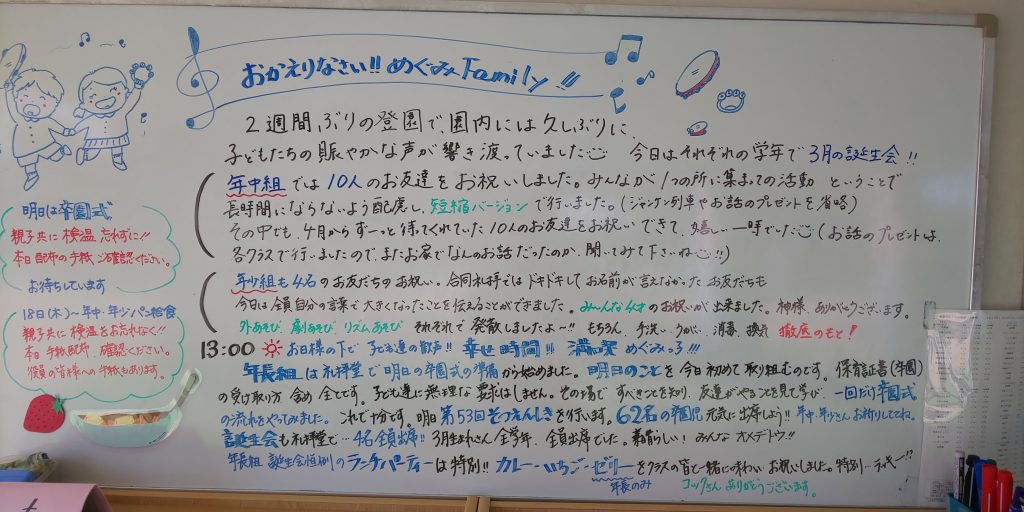 おかえりなさい!! めぐみFamily!!
2週間ぶりの登園で、園内には久しぶりに、
子どもたちの賑やかな声が響き渡っていました 今日はそれぞれの学年で3月の誕生会!!
年中組では10人のお友達をお祝いしました。みんなが1つの所に集まっての活動 ということで
長時間にならないよう配慮し、短縮バージョンで行いました。(ジャンケン列車やお話のプレゼントを省略)
その中でも、4月からずーっと待ってくれていた10人のお友達をお祝いできて、嬉しい一時でした (お話のプレゼントは、
各クラスで行いましたので、またお家でなんのお話だったのか、聞いてみて下さいね!!)
年少組も4名のお友だちのお祝い。合同礼拝ではドキドキしてお名前が言えなかったお友だちも
今日は全員自分の言葉で大きくなったことを伝えることができました。みんな4才のお祝いが出来ました。神様、ありがとうございます。
外あそび、劇あそび、リズムあそび それぞれで発散しましたよー!! もちろん、手洗い、うがい、消毒、換気 徹底のもと!
13:00 お日様の下で 子ども達の歓声!! 幸せ時間!! 満喫 めぐみっ子!!!
年長組は礼拝堂で明日の卒園式の準備から始めました。明日のことを今日初めて取り組むのです。保育証書(卒園)
の受け取り方 含め 全てです。子ども達に無理な要求はしません。その場で すべきことを知り、友達がやることを見て学び、一回だけ卒園式
の流れをやってみました。これで十分です。明日 第53回そつえんしきを行います。62名の卒園児 元気に出席しよう!! 年中、年少さんお祈りしててね。
誕生会も礼拝堂で…4名全員出席!! 3月生まれさん 全学年、全員出席でした。素晴らしい! みんな オメデトウ!!
年長組 誕生会恒例のランチパーティーは特別!! カレー・いちご・ゼリーをクラスの皆と一緒に味わい、お祝いしました。特別…
年長のみ
コックさんありがとうございます。
明日は卒園式
親子共に検温忘れずに!!
本日配布の手紙、ご確認ください。
お待ちしています
18日(木)〜年中・年少パン給食
親子共に検温をお忘れなく!!
本日手紙配布、確認ください。
役員の皆様への手紙もあります。